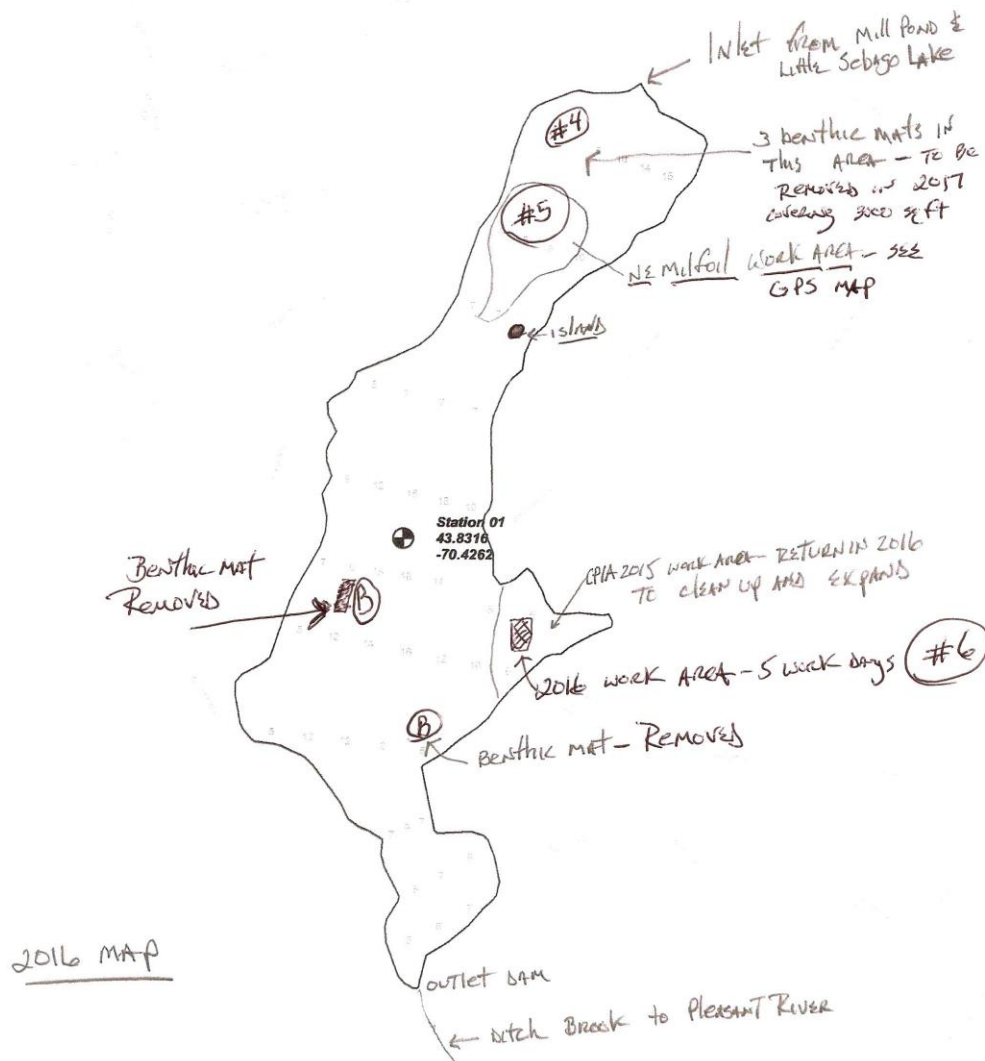 INLET FROM MILL POND &
LITTLE SEBAGO LAKE
#4
3 BENTHIC MATS IN
THIS AREA - TO BE
REMOVED IN 2017
COVERING 3000 SQ FT
#5
NE MILFOIL WORK AREA - SEE
GPS MAP
ISLAND
Station 01
43.8316
-70.4262
BENTHIC MAT
REMOVED
B
CPIA 2015 WORK AREA - RETURN IN 2016
TO CLEAN UP AND EXPAND
2016 WORK AREA - 5 WORK DAYS #6
B
BENTHIC MAT - REMOVED
2016 MAP
OUTLET DAM
DITCH BROOK to PLEASANT RIVER